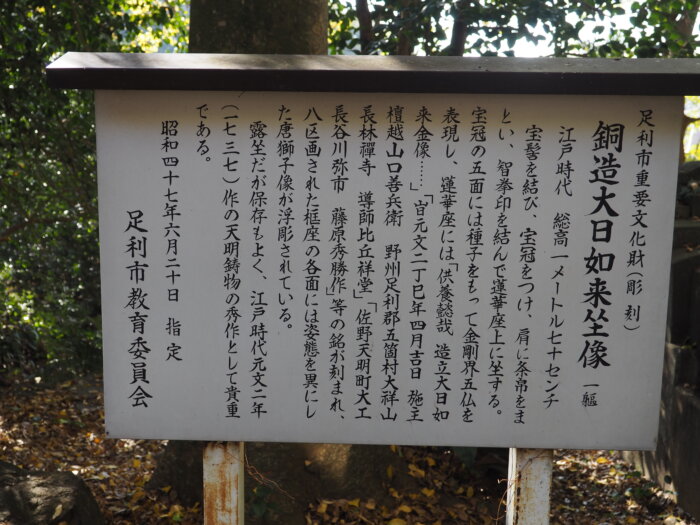 足利市重要文化財(彫刻)
銅造大日如来坐像 一軀
江戸時代 総高一メートル七十センチ
宝髻を結び、宝冠をつけ、肩に条帛をま
とい、智拳印を結んで蓮華座上に坐する。
宝冠の五面には種子をもって金剛界五仏を
表現し、蓮華座には「供養諮哉 造立大日如
来金像……」「旹元文二丁巳年四月吉日 施主
檀越山口善兵衛 野州足利郡五箇村大祥山
長林禪寺 導師比丘祥堂」「佐野天明町大工
長谷川弥市 藤原秀勝作」等の銘が刻まれ、
八区画された框座の各面には姿態を異にし
た唐獅子像が浮彫されている。
露坐だが保存もよく、江戸時代元文二年
(一七三七)作の天明鋳物の秀作として貴重
である。
昭和四十七年六月二十日 指定
足利市教育委員会